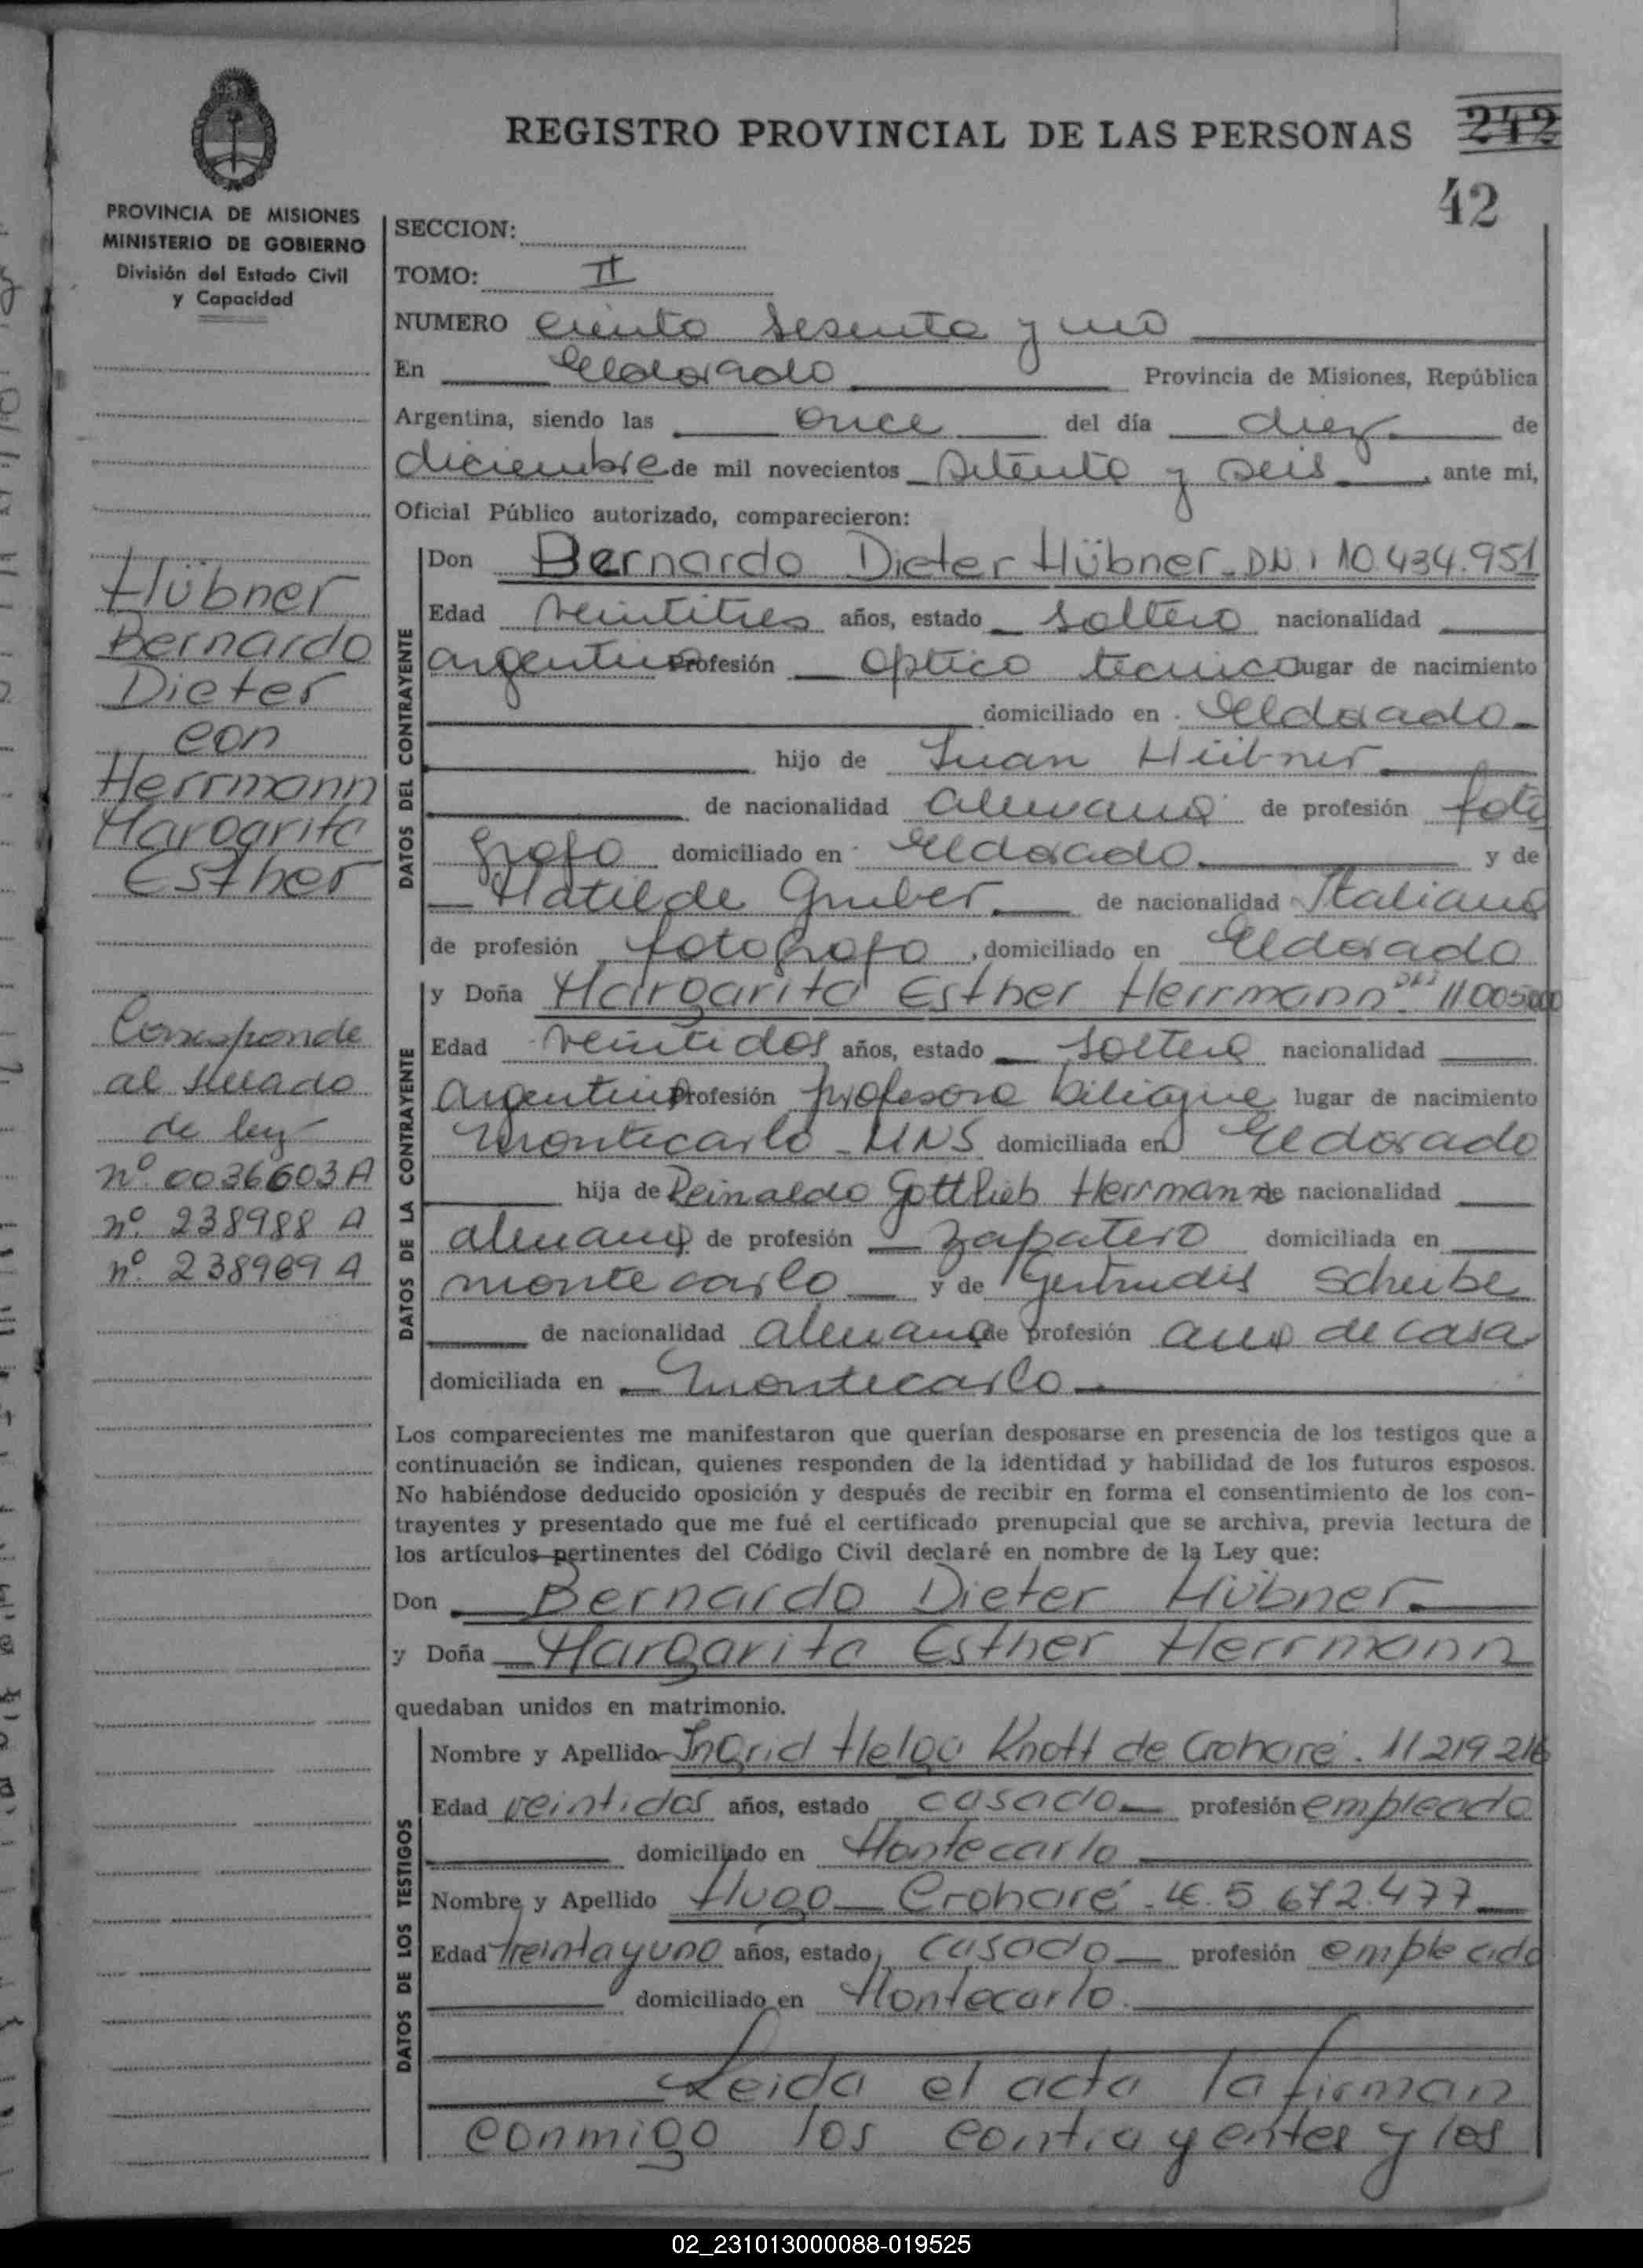 REGISTRO PROVINCIAL DE LAS PERSONAS
242
42
PROVINCIA DE MISIONES
MINISTERIO DE GOBIERNO
División del Estado Civil
y Capacidad
SECCION:
TOMO: II
NUMERO ciento sesenta y uno
En Eldorado Provincia de Misiones, República
Argentina, siendo las once del día diez de
diciembre de mil novecientos setenta y seis, ante mi,
Oficial Público autorizado, comparecieron:
DATOS DEL CONTRAYENTE
Don Bernardo Dieter Hübner DNI 10.434.951
Edad veintitres años, estado soltero nacionalidad
argentino Profesión optico tecnico lugar de nacimiento
domiciliado en Eldorado
hijo de Juan Hübner
de nacionalidad alemana de profesión foto
grafo domiciliado en Eldorado y de
Matilde Gruber de nacionalidad Italiana
de profesión fotografa, domiciliado en Eldorado
DATOS DE LA CONTRAYENTE
y Doña Margarita Esther Herrmann DNI 11005000
Edad veintidos años, estado soltera nacionalidad
argentina Profesión profesora bilingue lugar de nacimiento
Montecarlo - MNS domiciliada en Eldorado
hija de Reinaldo Gottlieb Herrmann de nacionalidad
alemana de profesión zapatero domiciliada en
montecarlo y de Gertrudis Scheibe
de nacionalidad alemana de profesión ama de casa
domiciliada en Montecarlo
Los comparecientes me manifestaron que querían desposarse en presencia de los testigos que a
continuación se indican, quienes responden de la identidad y habilidad de los futuros esposos.
No habiéndose deducido oposición y después de recibir en forma el consentimiento de los con-
trayentes y presentado que me fué el certificado prenupcial que se archiva, previa lectura de
los artículos pertinentes del Código Civil declaré en nombre de la Ley que:
Don Bernardo Dieter Hübner
y Doña Margarita Esther Herrmann
quedaban unidos en matrimonio.
DATOS DE LOS TESTIGOS
Nombre y Apellido Ingrid Helga Knott de Croharé. 11 219 216
Edad veintidos años, estado casada profesión empleada
domiciliado en Montecarlo
Nombre y Apellido Hugo Croharé LE. 5 672.477
Edad treinta y uno años, estado casado profesión empleado
domiciliado en Montecarlo
Leida el acta la firman
conmigo los contrayentes y los
Hübner
Bernardo
Dieter
con
Herrmann
Margarita
Esther
Corresponde
al sellado
de ley
nº 0036603 A
nº. 238988 A
nº. 238989 A
02_231013000088-019525